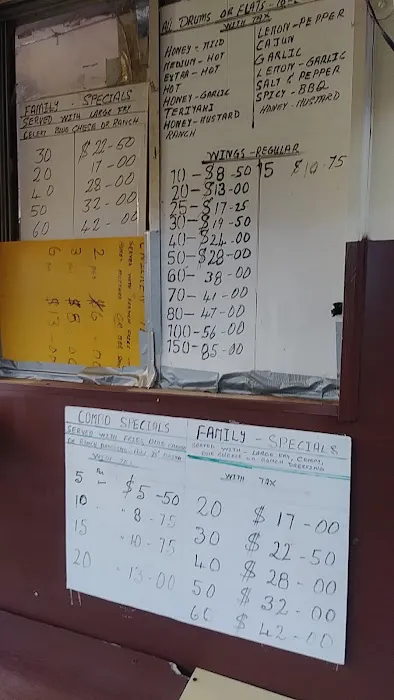 ALL DRUMS OR FLATS
WITH TAX
HONEY - MILD
MEDIUM - HOT
EXTRA - HOT
HOT
HONEY - GARLIC
TERIYAKI
HONEY - MUSTARD
RANCH
LEMON - PEPPER
CAJUN
GARLIC
LEMON - GARLIC
SALT & PEPPER
SPICY - BBQ
HONEY - MUSTARD
FAMILY - SPECIALS
SERVED WITH LARGE FRY
CELERY BLUE CHEESE OR RANCH
30 $22-50
20 17-00
40 28-00
50 32-00
60 42-00
WINGS - REGULAR
10 - $8-50
15 $10-75
20 - $13-00
25 - $17-25
30 - $19-50
40 - $24-00
50 - $28-00
60 - 38-00
70 - 41-00
80 - 47-00
100 - 56-00
150 - 85-00
COMBO SPECIALS
SERVED WITH FRIES, BLUE CHEESE
WITH TAX
5 $5-50
10 8-75
15 10-75
20 13-00
FAMILY - SPECIALS
SERVED WITH - LARGE FRY, CELERY,
BLUE CHEESE OR RANCH DRESSING
WITH TAX
20 $17-00
30 $22-50
40 $28-00
50 $32-00
60 $42-00